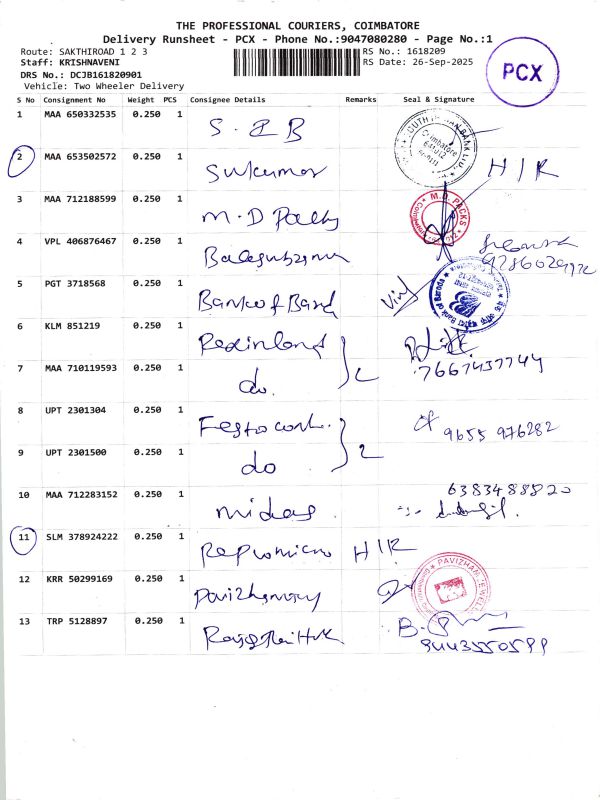 THE PROFESSIONAL COURIERS, COIMBATORE
Delivery Runsheet - PCX - Phone No.:9047080280 - Page No.:1
Route: SAKTHIROAD 1 2 3
RS No.: 1618209
Staff: KRISHNAVENI
RS Date: 26-Sep-2025
PCX
DRS No.: DCJB161820901
Vehicle: Two Wheeler Delivery
S No Consignment No Weight PCS Consignee Details Remarks Seal & Signature
1 MAA 650332535 0.250 1 S.I.B
2 MAA 653502572 0.250 1 Sukumar H/R
3 MAA 712188599 0.250 1 M.D Packs M.D. PACKS
4 VPL 406876467 0.250 1
5 PGT 3718568 0.250 1 Bank of Baroda Bank of Baroda
6 KLM 851219 0.250 1
7 MAA 710119593 0.250 1 do. 2 7667437744
8 UPT 2301304 0.250 1
9 UPT 2301500 0.250 1 do 2 9655 976282
10 MAA 712283152 0.250 1 midas 6383488820
11 SLM 378924222 0.250 1 H/R
12 KRR 50299169 0.250 1 PAVIZHAM JEWELL
13 TRP 5128897 0.250 1
9443550599